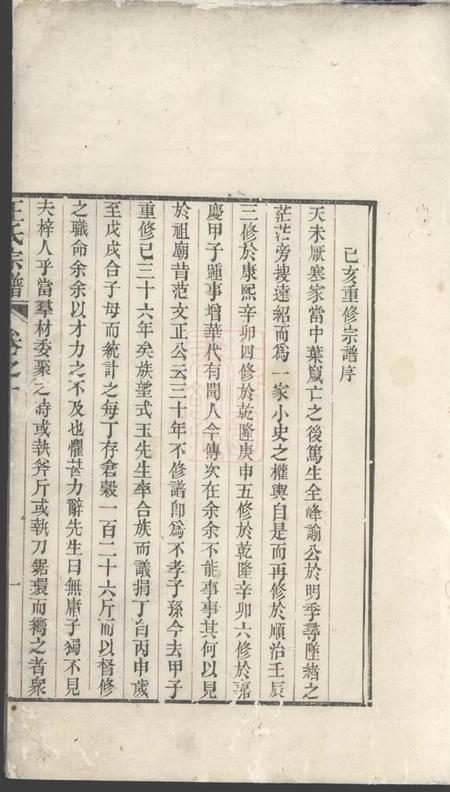 己亥重修宗譜序
天未厭塞家當中葉嵗亡之後篤生全峰諭公於明季尋墜緒之
茫茫旁搜遠紹而爲一家小史之權輿自是而再修於順治壬辰
三修於康熙辛卯四修於乾隆庚申五修於乾隆辛卯六修於嘉
慶甲子踵事增華代有聞人今傳次在余余不能事事其何以見
於祖廟昔范文正公云三十年不修譜卽爲不孝子孫今去甲子
重修已三十六年矣族望式玉先生率合族而議捐丁自丙申歲
至戊戌合子母而統計之每丁存倉穀一百二十六斤而以督修
之職命余余以才力之不及也懼甚力辭先生曰無庸子獨不見
夫梓人乎當羣材委聚之時或執斧斤或執刀鋸環而嚮之者衆
王氏宗譜 卷之 一